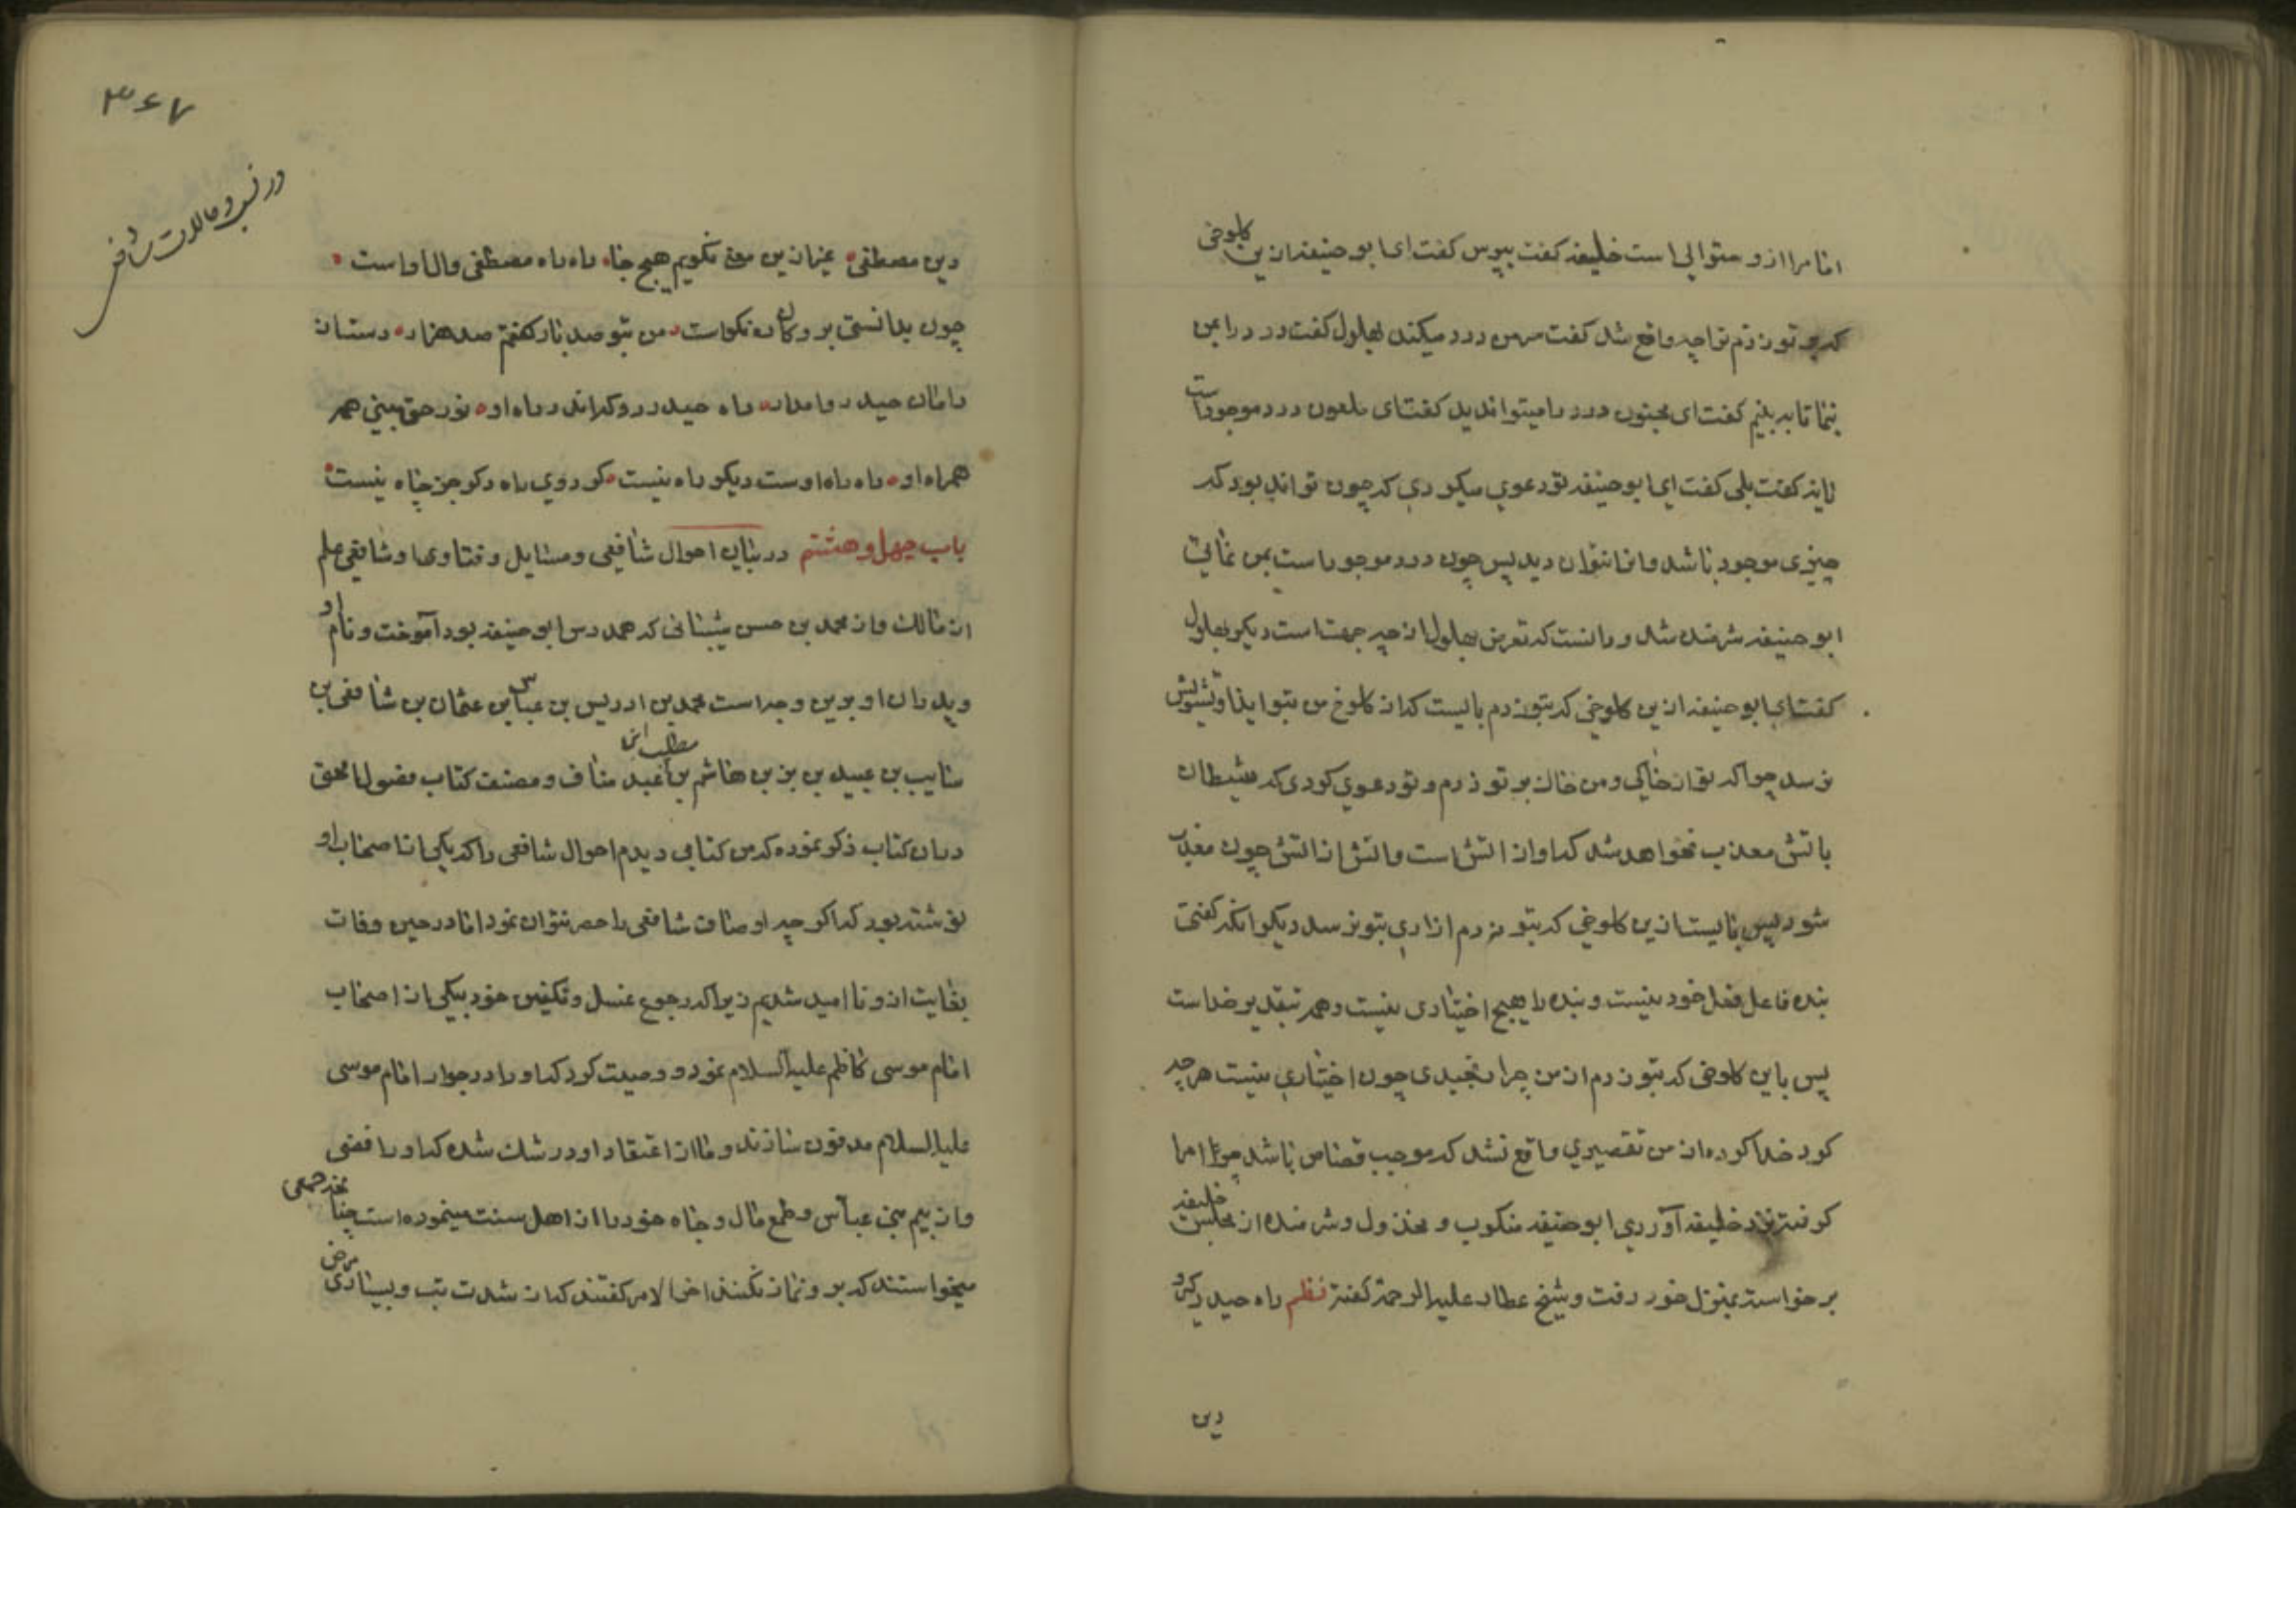 اما مرا ازو سئوالی است خلیفه گفت بپرس گفت ای ابو حنیفه ازین کلوخی
که بر تو زدم ترا چه واقع شد گفت سرمن درد میکند بهلول گفت درد را بمن
بنما تا به بینم گفت ای مجنون درد را میتوان دید گفت ای ملعون درد موجود است
یا نه گفت بلی گفت ای ابو حنیفه تو دعوی میکردی که چون تواند بود که
چیزی موجود باشد و انرا نتوان دید پس چون درد موجود است بمن نمائی
ابو حنیفه شرمنده شد و دانست که تعرض بهلول از چه جهت است دیگر بهلول
گفت ای ابو حنیفه ازین کلوخی که بتو زدم بایست که از کلوخ من بتو ایذا و تشویش
نرسد چرا که تو از خاکی و من خاک بر تو زدم و تو دعوی کردی که شیطان
باتش معذب نخواهد شد که او از اتش است و اتش از اتش چون معذب
شود پس بایست ازین کلوخی که بتو زدم ازاری بتو نرسد دیگر انکه گفتی
بنده فاعل فعل خود نیست و بنده را هیچ اختیاری نیست و همه بتقدیر خداست
پس باین کلوخی که بتو زدم از من چرا رنجیدی چون اختیاری نیست هرچه
کرد خدا کرده از من تقصیری واقع نشد که موجب قصاص باشد چرا مرا
گرفته نزد خلیفه آوردی ابو حنیفه منکوب و مخذول و شرمنده از مجلس خلیفه
برخواسته بمنزل خود رفت و شیخ عطار علیه الرحمة گفته نظم راه حیدر گیر
دین
۳۶۷
در نسب و حالات شافعی
دین مصطفی غیر ازین معنی نگویم هیچ جا راه راه مصطفی وال او است
چون بدانستی برو کان ره نکواست من بتو صد بار گفتم صد هزار دست از
دامان حیدر وا مدار راه حیدر رو که اندر راه او نور حق بینی همه
همراه او راه راه اوست دیگر راه نیست گر روی راه دگر جز چاه نیست
باب چهل و هشتم در بیان احوال شافعی و مسایل و فتاوی او شافعی علم
از مالک و از محمد بن حسن شیبانی که همدرس ابو حنیفه بود آموخت و نام او
و پدران او برین وجه است محمد بن ادریس بن عباس بن عثمان بن شافعی بن
سایب بن عبید بن یزید بن هاشم بن مطلب ابن عبد مناف و مصنف کتاب فصول الحق
دران کتاب ذکر نموده که من کتابی دیدم احوال شافعی را که یکی از اصحاب او
نوشته بود که اگر چه اوصاف شافعی را حصر نتوان نمود اما در حین وفات
بغایت ازو نا امید شدیم زیرا که رجوع غسل و تکفین خود بیکی از اصحاب
امام موسی کاظم علیه السلام نمود و وصیت کرد که او را در جوار امام موسی
علیه السلام مدفون سازند و ما از اعتقاد او در شک شده که او رافضی
و از بیم بنی عباس و طمع مال و جاه خود را از اهل سنت مینموده است چنانچه جمعی
میخواستند که برو نماز نکنند اخر الامر گفتند که از شدت تب و بسیاری مرض